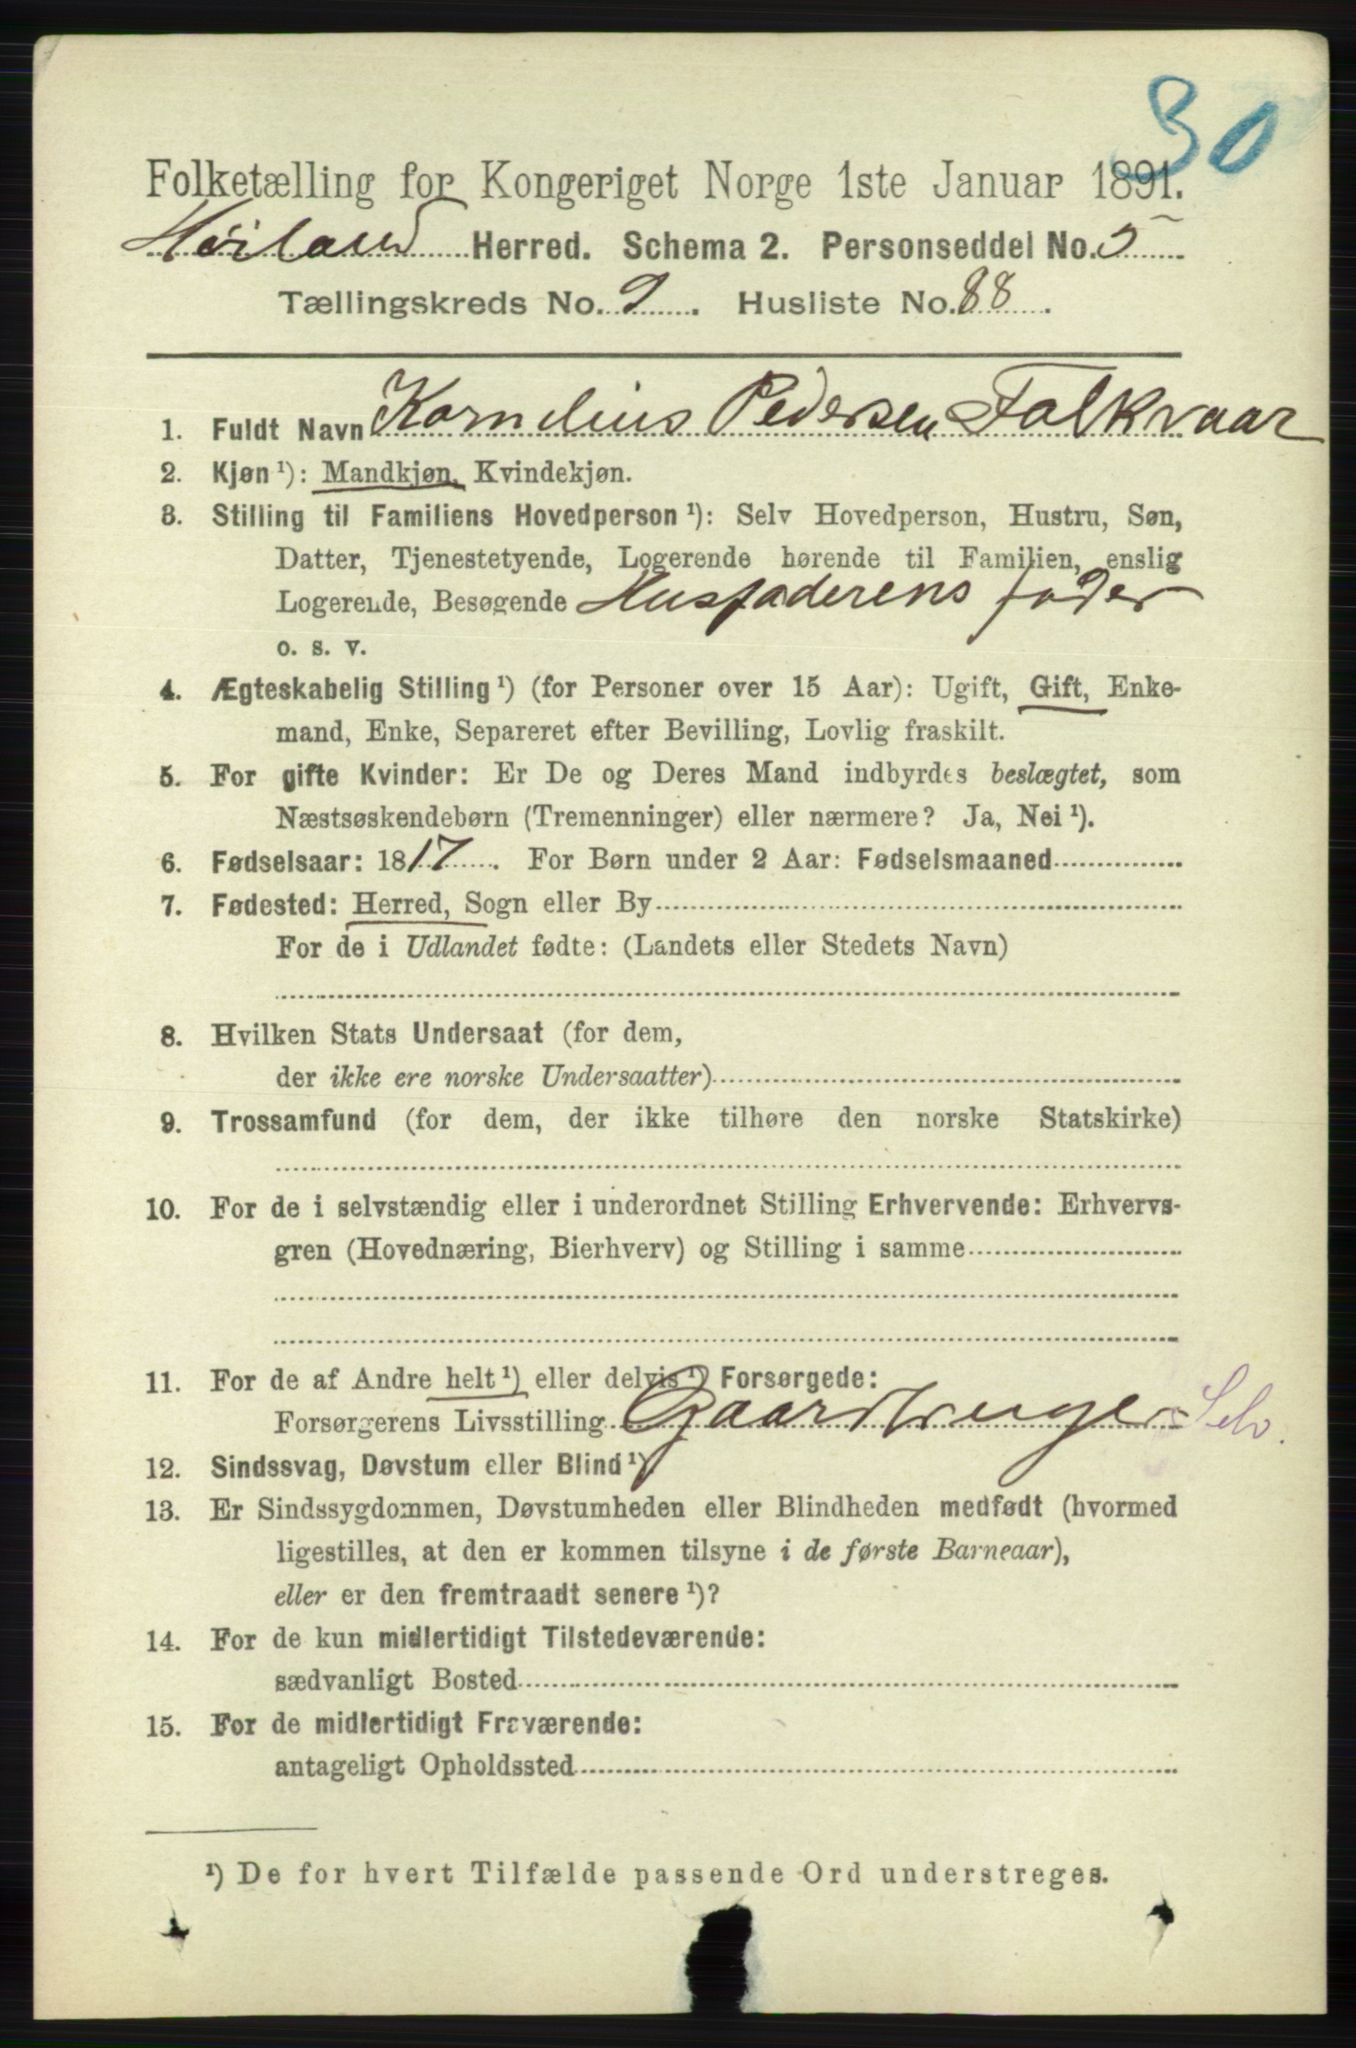 30
Folketælling for Kongeriget Norge 1ste Januar 1891.
Høiland Herred. Schema 2. Personseddel No. 5
Tællingskreds No. 9. Husliste No. 88.
1. Fuldt Navn Kornelius Pedersen Folkvaar
2. Kjøn ¹): Mandkjøn, Kvindekjøn.
3. Stilling til Familiens Hovedperson ¹): Selv Hovedperson, Hustru, Søn,
Datter, Tjenestetyende, Logerende hørende til Familien, enslig
Logerende, Besøgende Husfaderens fader
o. s. v.
4. Ægteskabelig Stilling ¹) (for Personer over 15 Aar): Ugift, Gift, Enke-
mand, Enke, Separeret efter Bevilling, Lovlig fraskilt.
5. For gifte Kvinder: Er De og Deres Mand indbyrdes beslægtet, som
Næstsøskendebørn (Tremenninger) eller nærmere? Ja, Nei ¹).
6. Fødselsaar: 1817. For Børn under 2 Aar: Fødselsmaaned
7. Fødested: Herred, Sogn eller By
For de i Udlandet fødte: (Landets eller Stedets Navn)
8. Hvilken Stats Undersaat (for dem,
der ikke ere norske Undersaatter)
9. Trossamfund (for dem, der ikke tilhøre den norske Statskirke)
10. For de i selvstændig eller i underordnet Stilling Erhvervende: Erhvervs-
gren (Hovednæring, Bierhverv) og Stilling i samme
11. For de af Andre helt ¹) eller delvis ¹) Forsørgede:
Forsørgerens Livsstilling Gaardbruger Selv.
12. Sindssvag, Døvstum eller Blind ¹)
13. Er Sindssygdommen, Døvstumheden eller Blindheden medfødt (hvormed
ligestilles, at den er kommen tilsyne i de første Barneaar),
eller er den fremtraadt senere ¹)?
14. For de kun midlertidigt Tilstedeværende:
sædvanligt Bosted
15. For de midlertidigt Fraværende:
antageligt Opholdssted
¹) De for hvert Tilfælde passende Ord understreges.